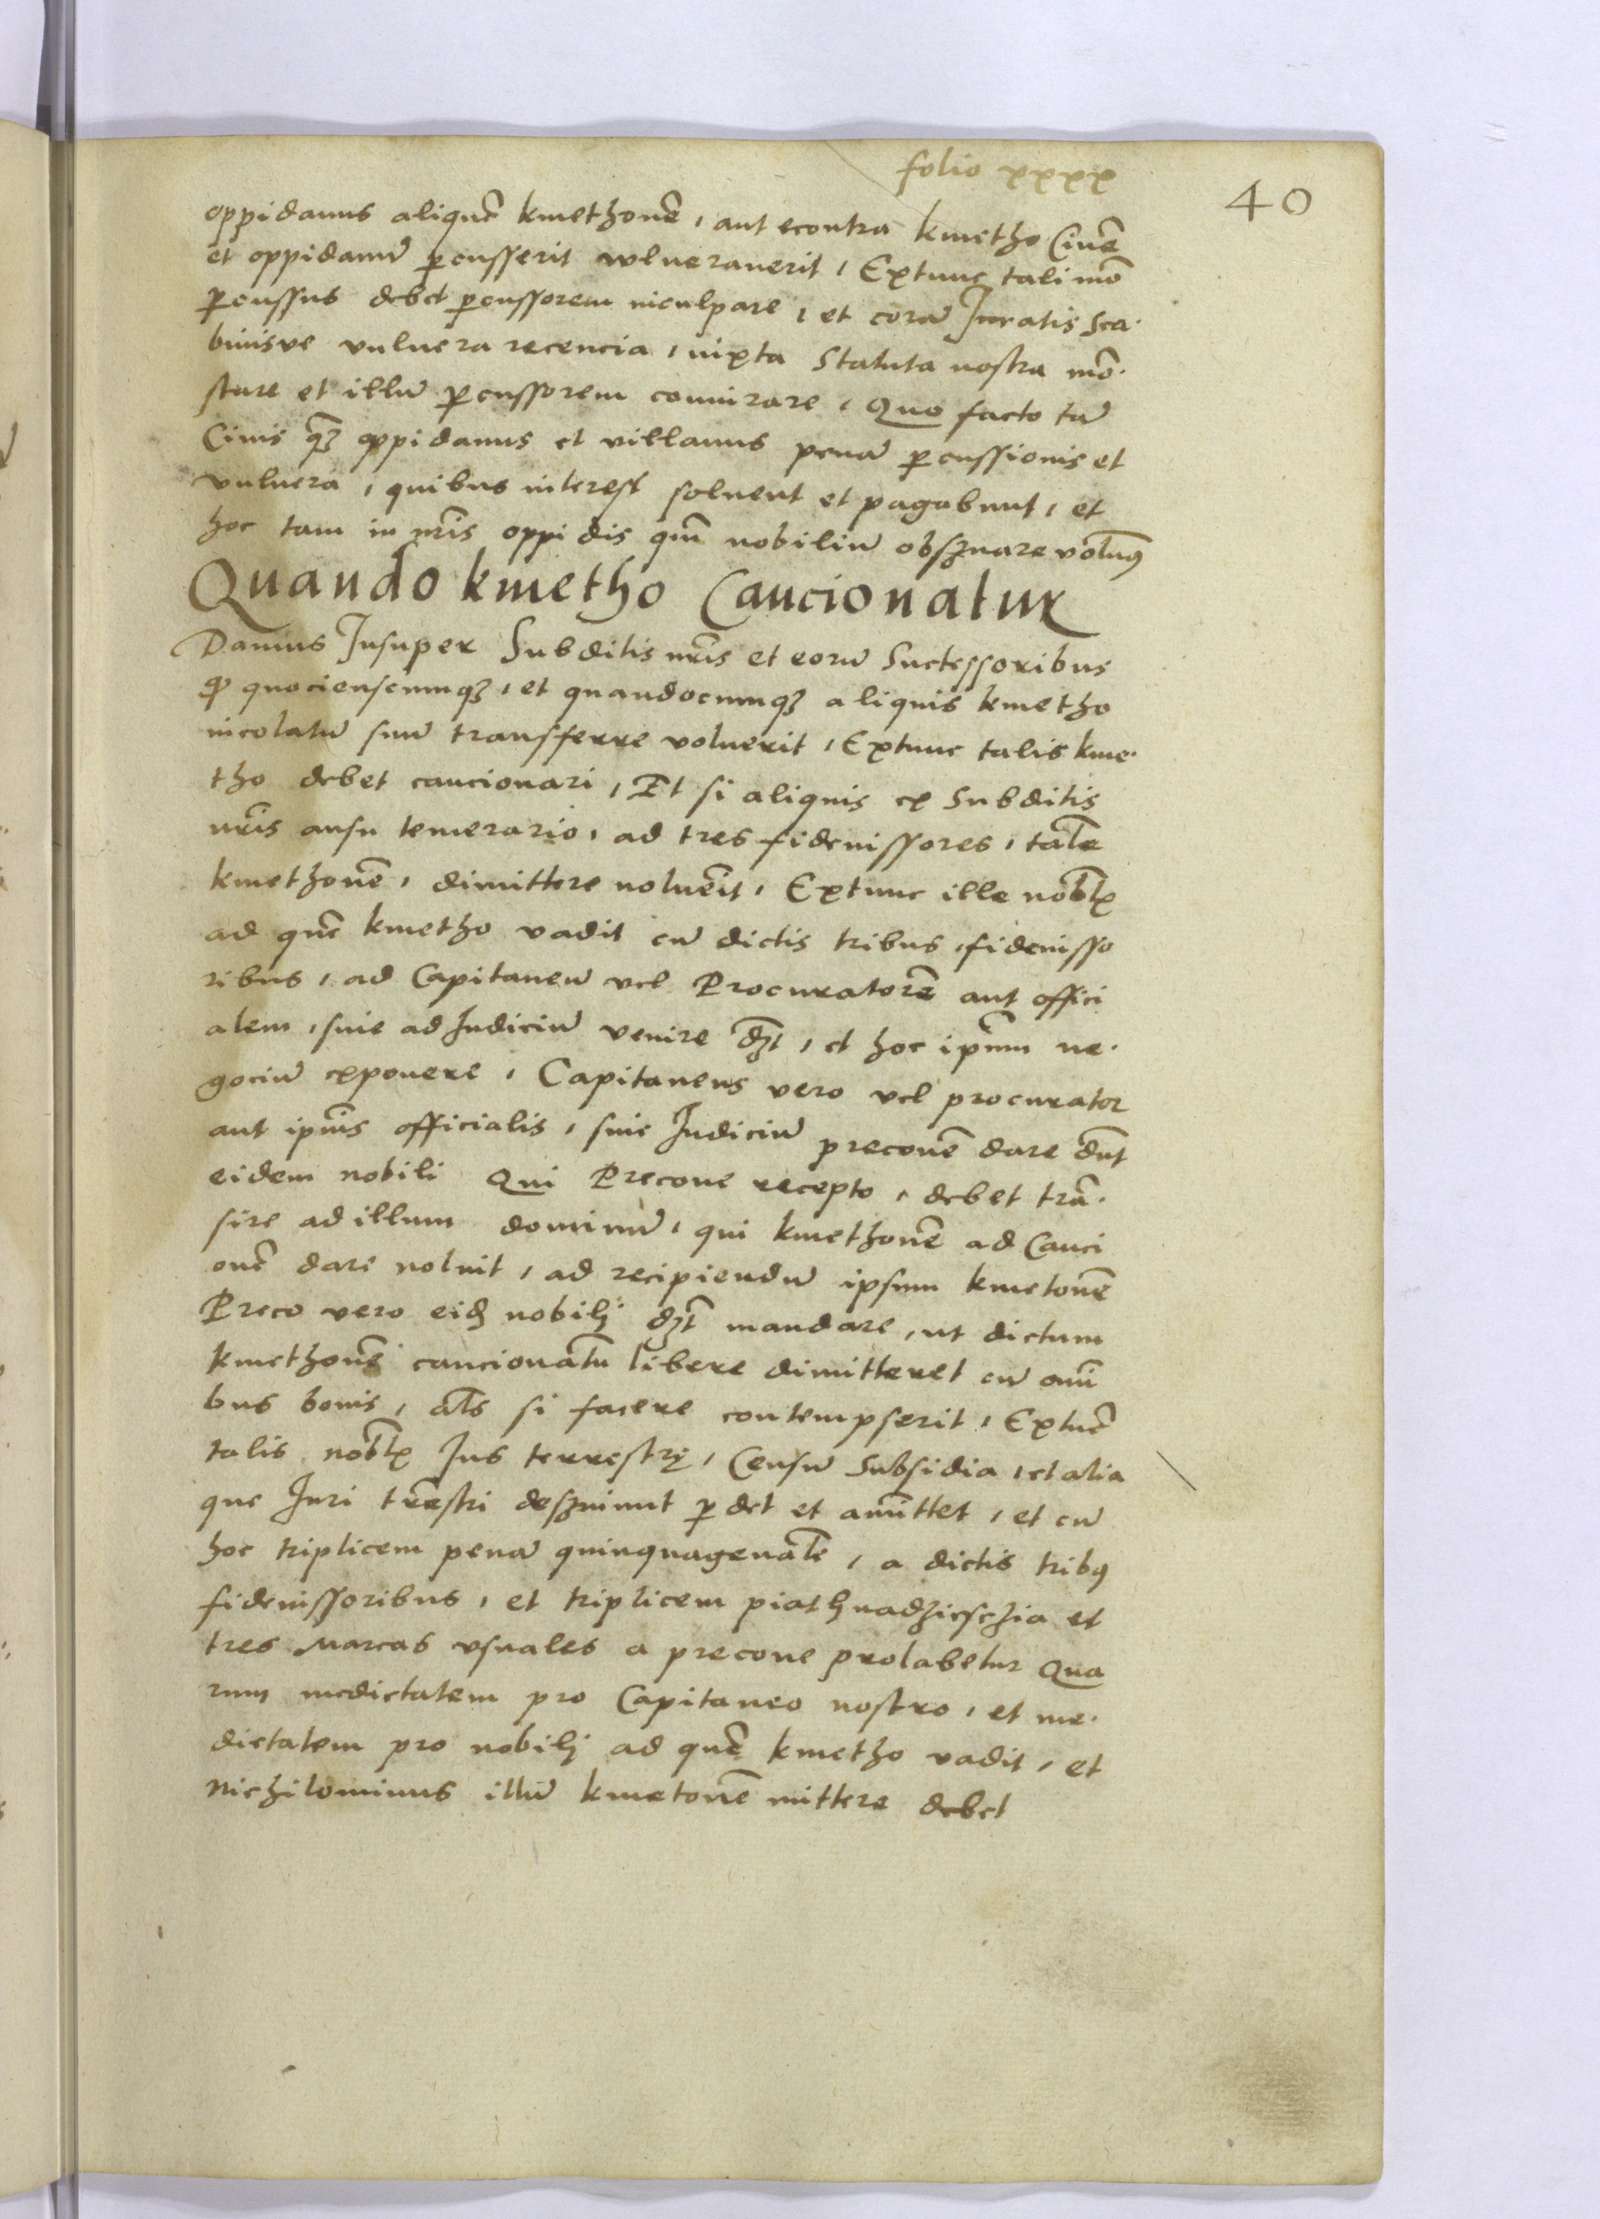 folio xxxx
40
oppidanus aliquē kmethonē, aut econtra kmetho Ciuē
et oppidanū ꝑcusserit wlnerauerit, Extunc tali mō
ꝑcussus debet ꝑcussorem inculpare, et corā Iuratis Sca-
binisve vulnera recencia, iuxta Statuta nostra mō-
strare et illū ꝑcussorem coniurare, Quo facto tā
Ciuis qꝫ oppidanus et villanus penā ꝑcussionis et
vulnera, quibus interest soluent et pagabunt, et
hoc tam in nr̄is oppidis qm̄ nobiliū obsꝫuare volumꝰ
Quando kmetho Caucionatur
Damus Insuper Subditis nr̄is et eorū Successoribus
ꝙ quocienscumqꝫ, et quandocumqꝫ aliquis kmetho
incolatū suū transferre voluerit, Extunc talis kme-
tho debet caucionari, Et si aliquis ex Subditis
nr̄is ausu temerario, ad tres fideiussores, talē
kmethonē, dimittere noluerit, Extunc ille nobīlꝭ
ad quē kmetho vadit cū dictis tribus fideiusso
ribus, ad Capitaneū vel Procuratorē aut offici
alem, siue ad Iudiciū venire dꝫt, et hoc ipm̄ ne-
gociū exponere, Capitaneus vero vel procurator
aut ipīus officialis, siue Iudiciū preconē dare dn̄t
eidem nobili Qui Precone recepto, debet trā-
sire ad illum dominū, qui kmethonē ad Cauci
onē dare noluit, ad recipiendū ipsum kmetonē
Preco vero eidꝫ nobilj dꝫt mandare, ut dictum
kmethonē caucionatū libere dimitteret cū omī
bus bonis, al̄s si facere contempserit, Extūc
talis nobīlꝭ Ius terrestrę, Censū Subsidia, et alia
que Iuri trēstri desꝫuiunt ꝑdet et amittet, et cū
hoc triplicem penā quinquagenalē, a dictis tribꝰ
fideiussoribus, et triplicem piathnadziesczia et
tres Marcas vsuales a precone prolabetur Qua
rum medietatem pro Capitaneo nostro, et me-
dietatem pro nobilj ad quē kmetho vadit, et
Nichilominus illū kmetonē mittere debet